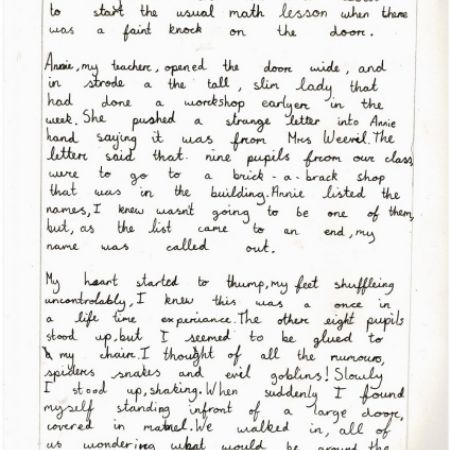 to start the usual math lesson when there
was a faint knock on the door.
Annie, my teacher, opened the door wide, and
in strode a the tall, slim lady that
had done a workshop earlyer in the
week. She pushed a strange letter into Annie
hand saying it was from Mrs Weevil. The
letter said that nine pupils from our class
were to go to a brick-a-brack shop
that was in the building. Annie listed the
names, I knew wasn't going to be one of them,
but, as the list came to an end, my
name was called out.
My heart started to thump, my feet shuffleing
uncontrolably, I knew this was a once in
a life time experiance. The other eight pupils
stood up, but I seemed to be glued to
my chair. I thought of all the rumours,
spiders snakes and evil goblins! Slowly
I stood up, shaking. When suddenly I found
myself standing infront of a large door,
covered in We walked in, all of
us wondering what would be around the